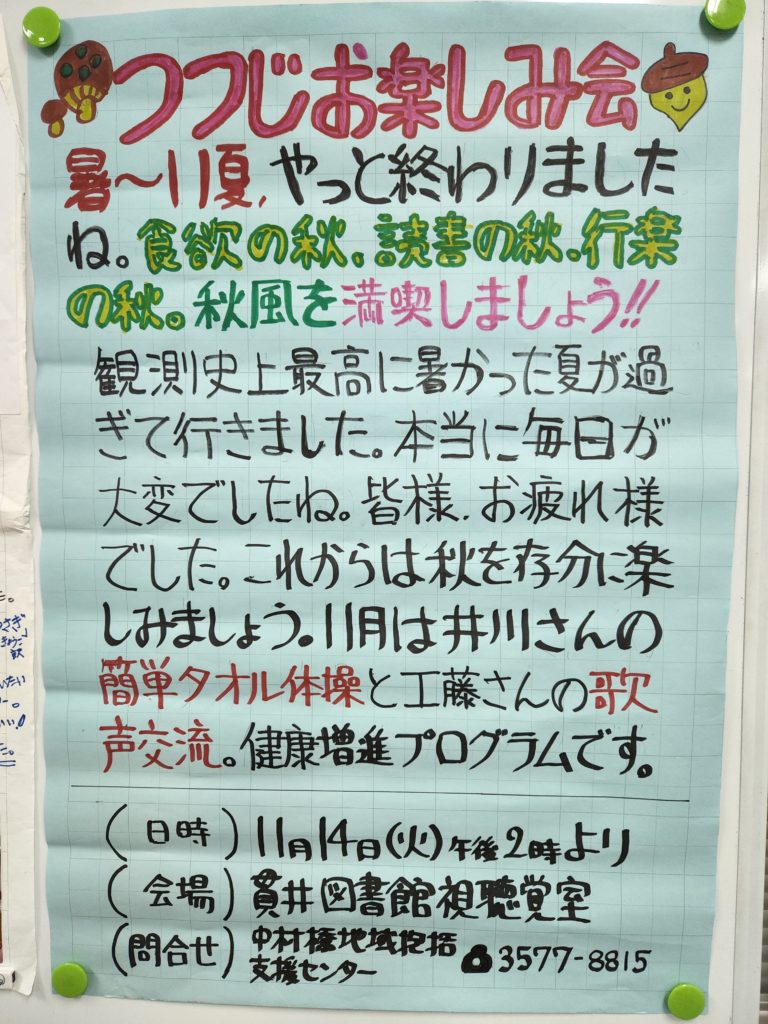 つつじお楽しみ会
暑〜い夏、やっと終わりました
ね。食欲の秋、読書の秋、行楽
の秋。秋風を満喫しましょう!!
観測史上最高に暑かった夏が過
ぎて行きました。本当に毎日が
大変でしたね。皆様、お疲れ様
でした。これからは秋を存分に楽
しみましょう。11月は井川さんの
簡単タオル体操と工藤さんの歌
声交流。健康増進プログラムです。
(日時) 11月14日(火)午後2時より
(会場) 貫井図書館視聴覚室
(問合せ) 中村橋地域包括
支援センター ☎3577-8815